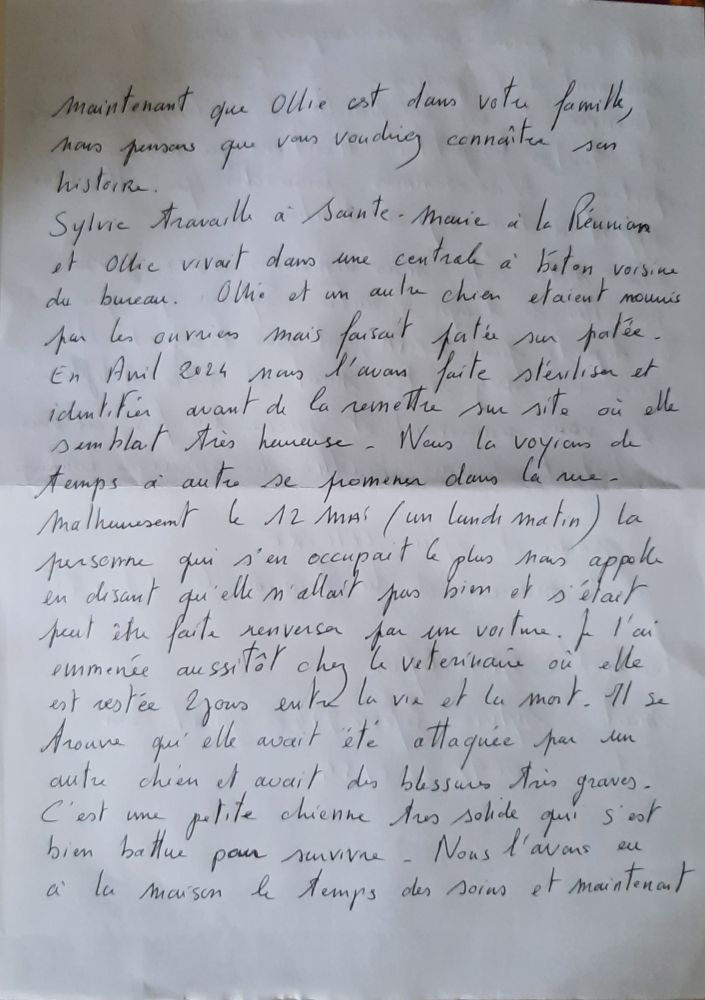 Maintenant que Ollie est dans votre famille,
nous pensons que vous voudriez connaître son
histoire.
Sylvie travaille à Sainte-Marie à la Réunion
et Ollie vivait dans une centrale à béton voisine
du bureau. Ollie et un autre chien etaient nourris
par les ouvriers mais faisait patée sur patée.
En Avril 2024 nous l'avons faite stériliser et
identifier avant de la remettre sur site où elle
semblait très heureuse - Nous la voyions de
temps à autre se promener dans la rue -
Malheuresemt le 12 MAI (un lundi matin) la
personne qui s'en occupait le plus nous appelle
en disant qu'elle n'allait pas bien et s'était
peut être faite renverser par une voiture. Je l'ai
emmenée aussitôt chez le veterinaire où elle
est restée 2 jours entre la vie et la mort. Il se
trouve qu'elle avait été attaquée par un
autre chien et avait des blessures très graves.
C'est une petite chienne tres solide qui s'est
bien battue pour survivre - Nous l'avons eu
à la maison le temps des soins et maintenant